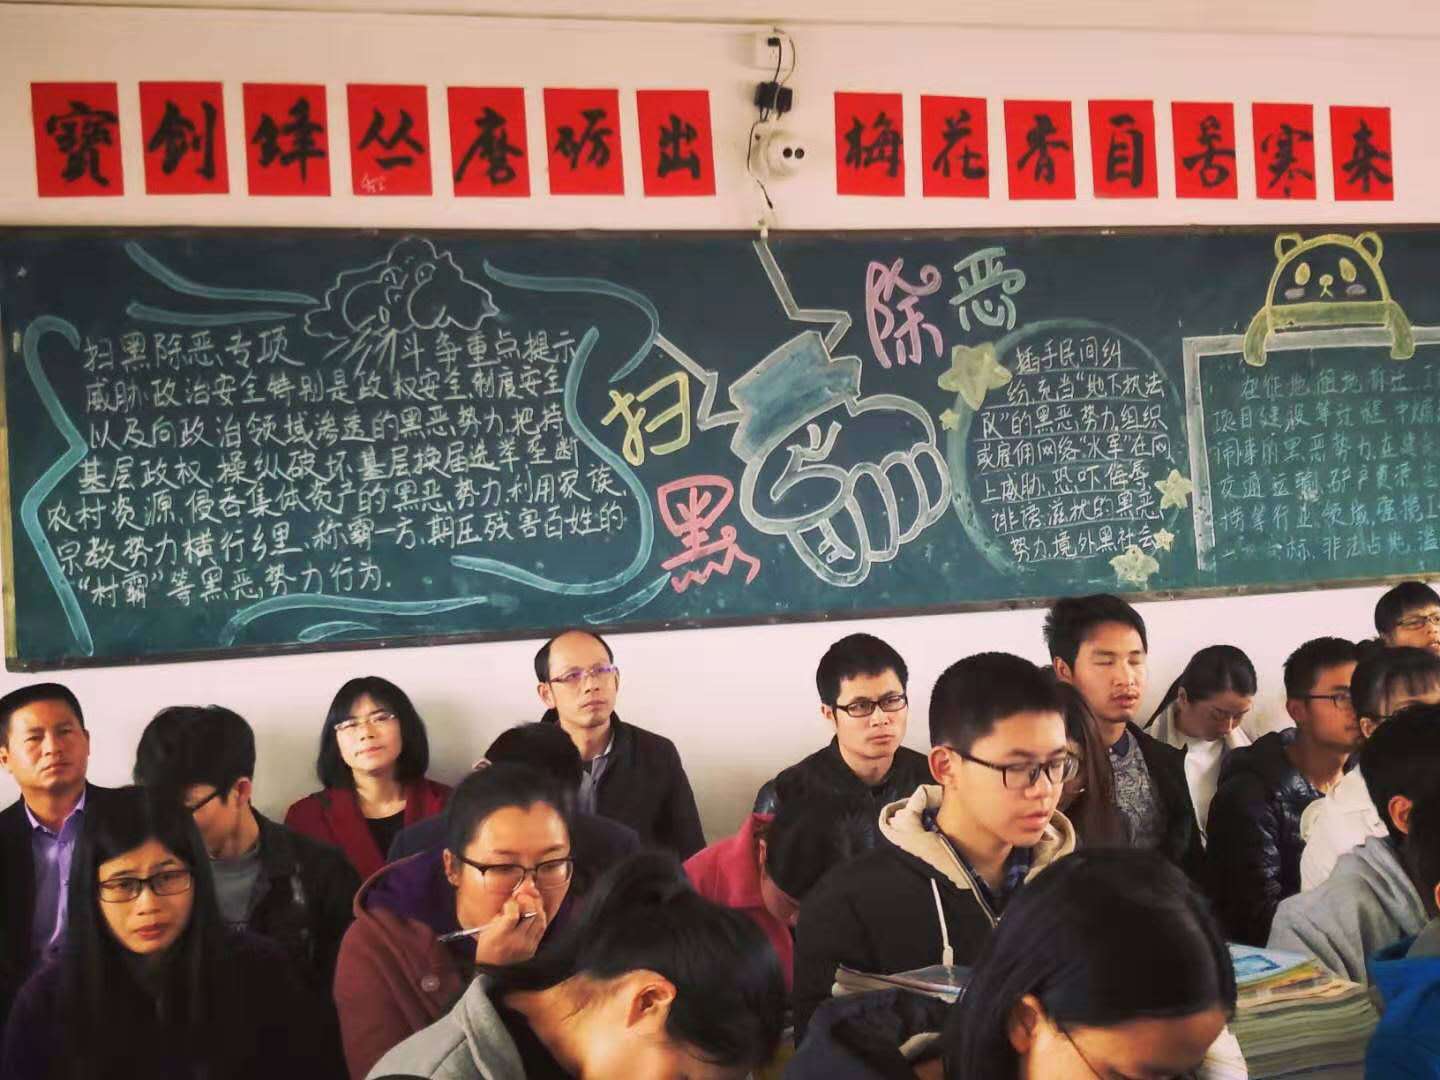 寶劍鋒从磨砺出
梅花香自苦寒来
扫黑除恶专项斗争重点提示
威胁政治安全特别是政权安全、制度安全
以及向政治领域渗透的黑恶势力,把持
基层政权、操纵破坏基层换届选举、垄断
农村资源、侵吞集体资产的黑恶势力,利用家族、
宗教势力横行乡里、称霸一方、欺压残害百姓的
“村霸”等黑恶势力行为.
扫黑
除恶
插手民间纠
纷,充当“地下执法
队”的黑恶势力,组织
或雇佣网络“水军”在网
上威胁、恐吓、侮辱、
诽谤、滋扰的黑恶
势力,境外黑社会
在征地、租地、拆迁、工
项目建设等过程中煽
闹事的黑恶势力,在建筑
交通运输、矿产资源
捞等行业、领域,强揽工
标、非法占地、滥